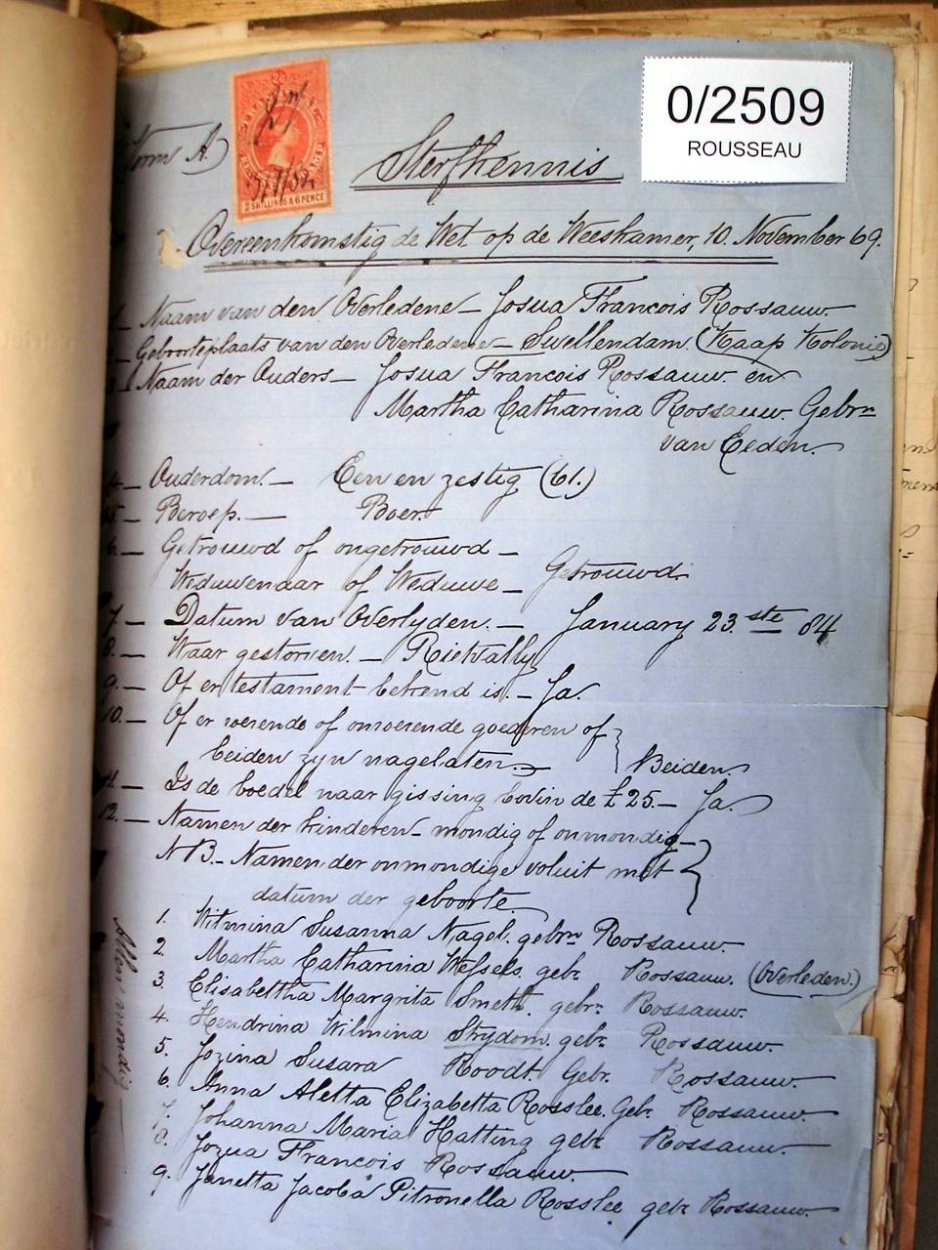 0/2509
ROUSSEAU
Form A.)
2 SHILLINGS & 6 PENCE
Sterfkennis
Overeenkomstig de Wet op de Weeskamer, 10. November 69.
Naam van den Overledene — Josua Francois Rossauw.
Geboorteplaats van den Overledene — Swellendam. (Kaap Kolonie)
Naam der Ouders — Josua Francois Rossauw. en
Martha Catharina Rossauw. Gebrn
van Eeden.
4. — Ouderdom. — Een en zestig (61.)
5. — Beroep. — Boer.
6. — Getrouwd of ongetrouwd —
Weduwenaar of Weduwe — Getrouwd.
7. — Datum van Overlyden. — January 23.ste 84
8. — Waar gestorven. — Rietvally
9. — Of er testament bekend is. — Ja.
10. — Of er roerende of onroerende goederen of
beiden zyn nagelaten. — } Beiden.
11. — Is de boedel naar gissing bovin de £25 — Ja.
12. — Namen der kinderen — mondig of onmondig —
NB. — Namen der onmondige voluit met
datum der geboorte.
1. Wilmina Susanna Nagel. gebrn Rossauw.
2. Martha Catharina Wessels. gebr Rossauw. (Overleden.)
3. Elisabettha Margrita Smett. gebr. Rossauw.
4. Hendrina Wilmina Strydom. gebr Rossauw.
5. Jozina Susara Roodt. Gebr. Rossauw.
6. Anna Aletta Elizabetta Rosslee. Geb. Rossauw.
7. Johanna Maria Hatting gebr Rossauw.
8. Jozua Francois Rossauw.
9. Janetta Jacoba Pitronella Rosslee gebr Rossauw.
Allen mondig